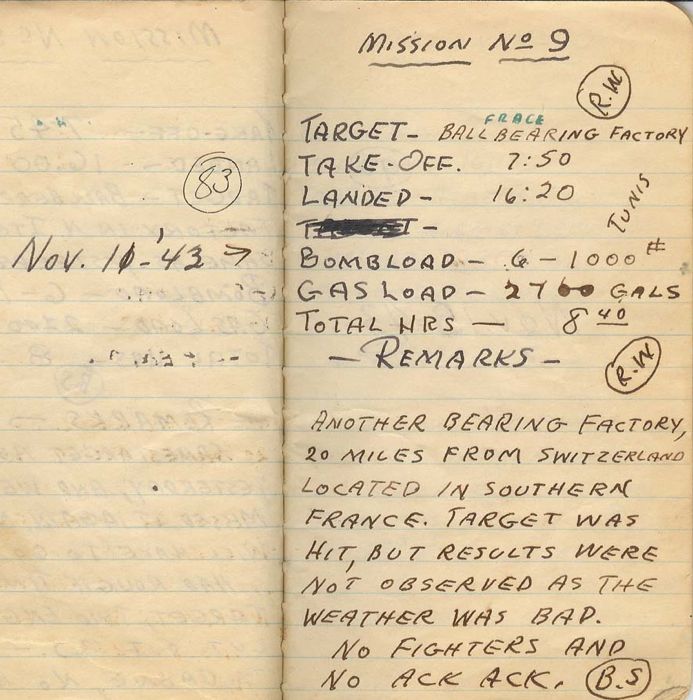 Mission No 9
R.W
FRACE
TARGET- BALL BEARING FACTORY
TAKE-OFF. 7:50
LANDED - 16:20
TUNIS
83
Nov. 10-43 →
BOMBLOAD - 6 - 1000 #
GAS LOAD - 2760 GALS
TOTAL HRS — 8 40
- REMARKS -
R.W
ANOTHER BEARING FACTORY,
20 MILES FROM SWITZERLAND
LOCATED IN SOUTHERN
FRANCE. TARGET WAS
HIT, BUT RESULTS WERE
NOT OBSERVED AS THE
WEATHER WAS BAD.
NO FIGHTERS AND
NO ACK ACK. B.S